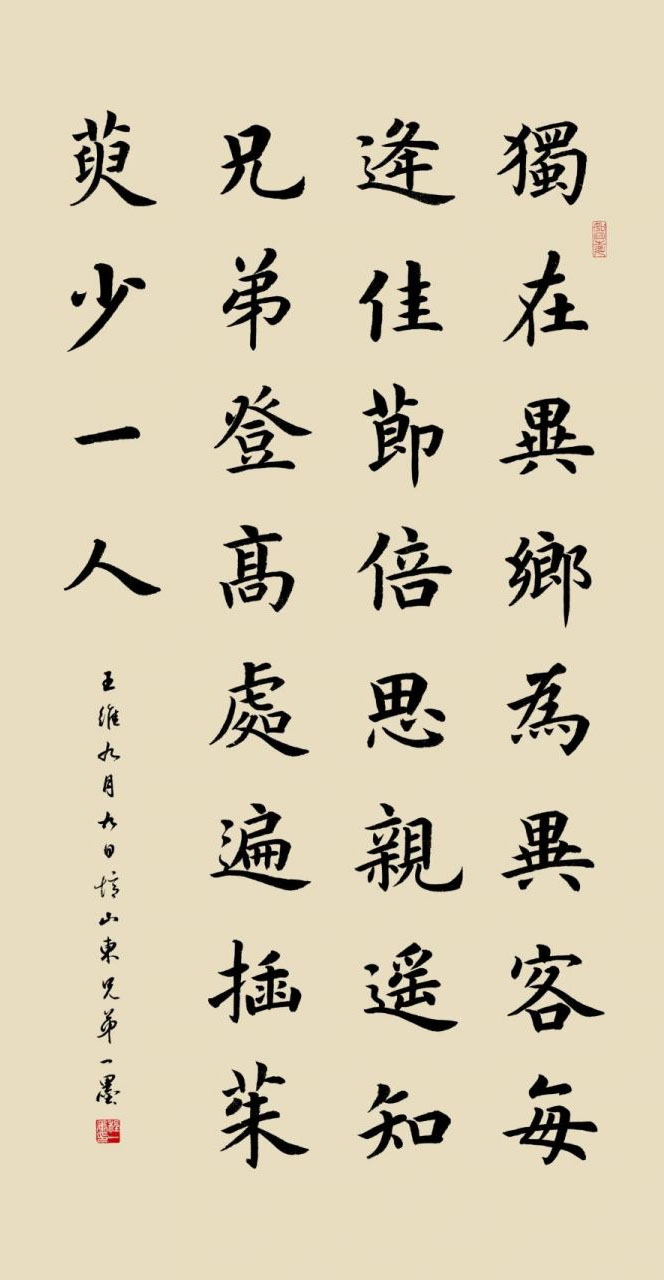 獨在異鄉為異客每
逢佳節倍思親遥知
兄弟登髙處遍插茱
萸少一人
王維九月九日憶山東兄弟一墨